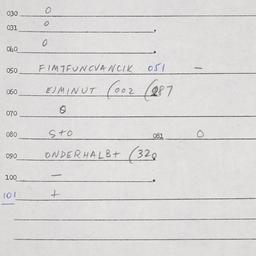 030 0
031 0
040 0
050 FIMTFUNCVANCIK 051 –
060 EJMINUT (002 (087
070 0
080 STO 081 0
090 ONDERHALBT (320
100 –
101 +